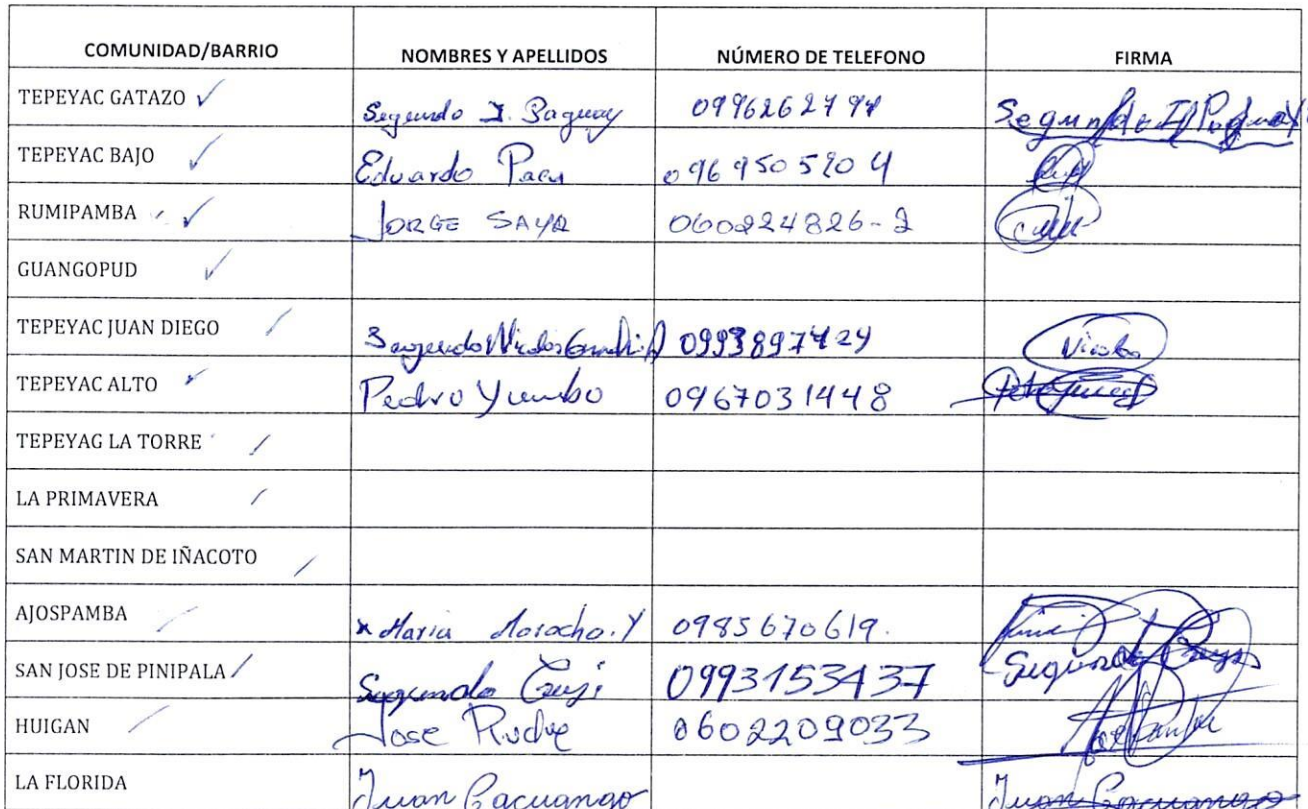 COMUNIDAD/BARRIO NOMBRES Y APELLIDOS NÚMERO DE TELEFONO FIRMA
TEPEYAC GATAZO Segundo I. Paguay 0996262794 Segundo I Paguay
TEPEYAC BAJO Eduardo 0969505204
RUMIPAMBA JORGE SAYA 060224826-2
GUANGOPUD
TEPEYAC JUAN DIEGO Segundo Nicolas 0993897424 Nicolas
TEPEYAC ALTO Pedro Yumbo 0967031448
TEPEYAG LA TORRE
LA PRIMAVERA
SAN MARTIN DE IÑACOTO
AJOSPAMBA x Maria Morocho. Y 0985670619.
SAN JOSE DE PINIPALA Segundo 0993153437 Segundo
HUIGAN Jose 0602209033
LA FLORIDA Juan Cacuango Juan Cacuango